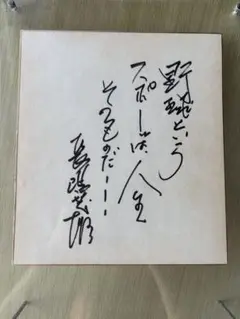 野球という
スポーツは人生
そのものだーー
長嶋茂雄